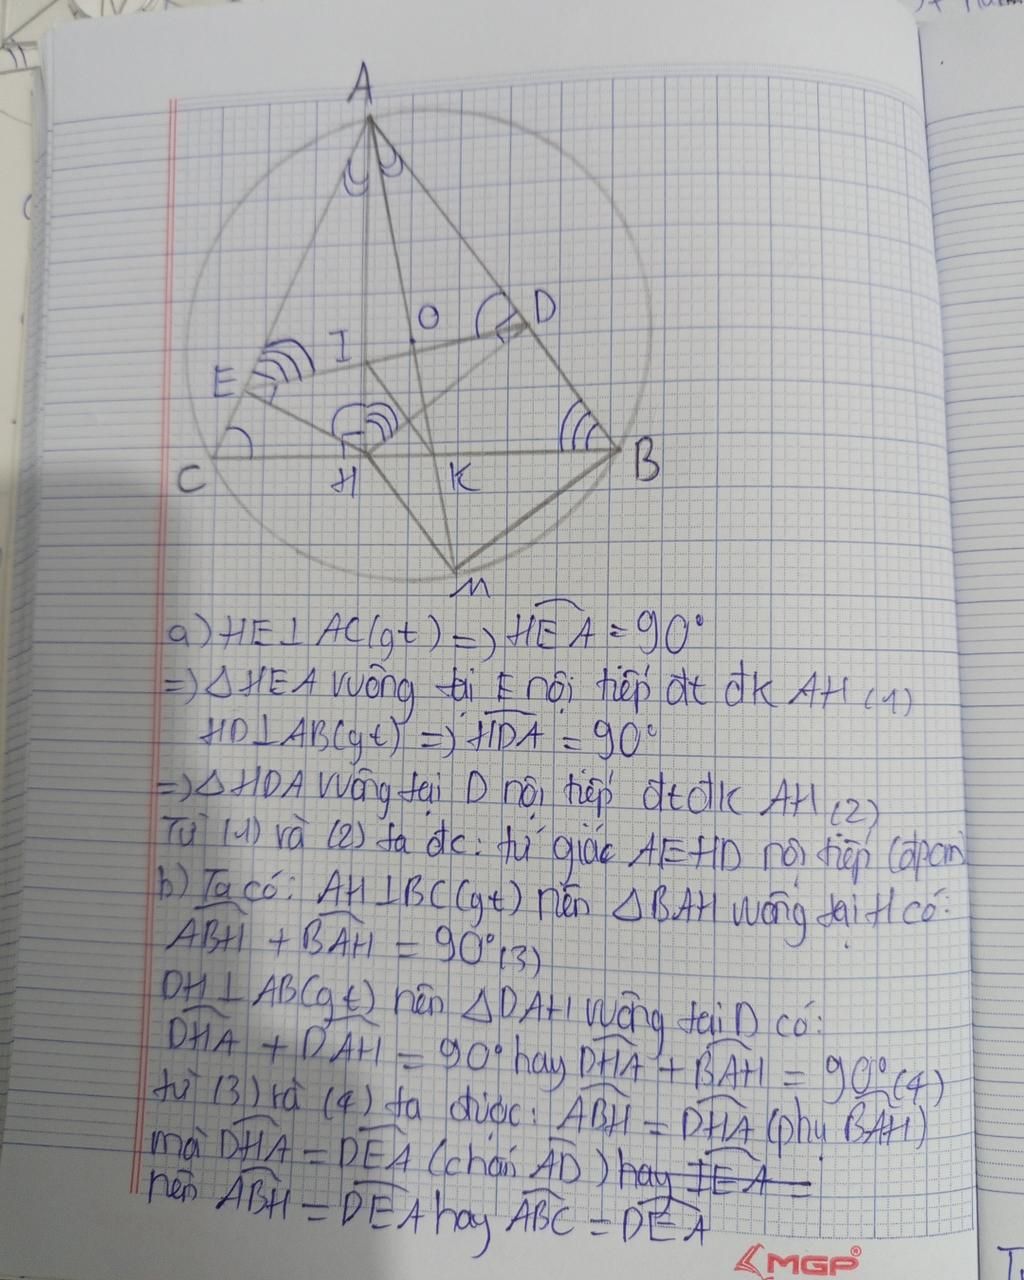 A
O
D
I
E
C
H
K
B
M
a) HE⊥AC(gt) => HEA = 90°
=> ΔHEA vuông tại E nội tiếp đt đk AH (1)
HD⊥AB(gt) => HDA = 90°
=> ΔHDA vuông tại D nội tiếp đt đk AH (2)
Từ (1) và (2) ta đc: tứ giác AEHD nội tiếp (đpcm)
b) Ta có: AH⊥BC(gt) nên ΔBAH vuông tại H có:
ABH + BAH = 90° (3)
DH⊥AB(gt) nên ΔDAH vuông tại D có:
DHA + DAH = 90° hay DHA + BAH = 90° (4)
từ (3) và (4) ta được: ABH = DHA (phụ BAH)
mà DHA = DEA (chắn AD) hay IEA =
nên ABH = DEA hay ABC = DEA
MGP®